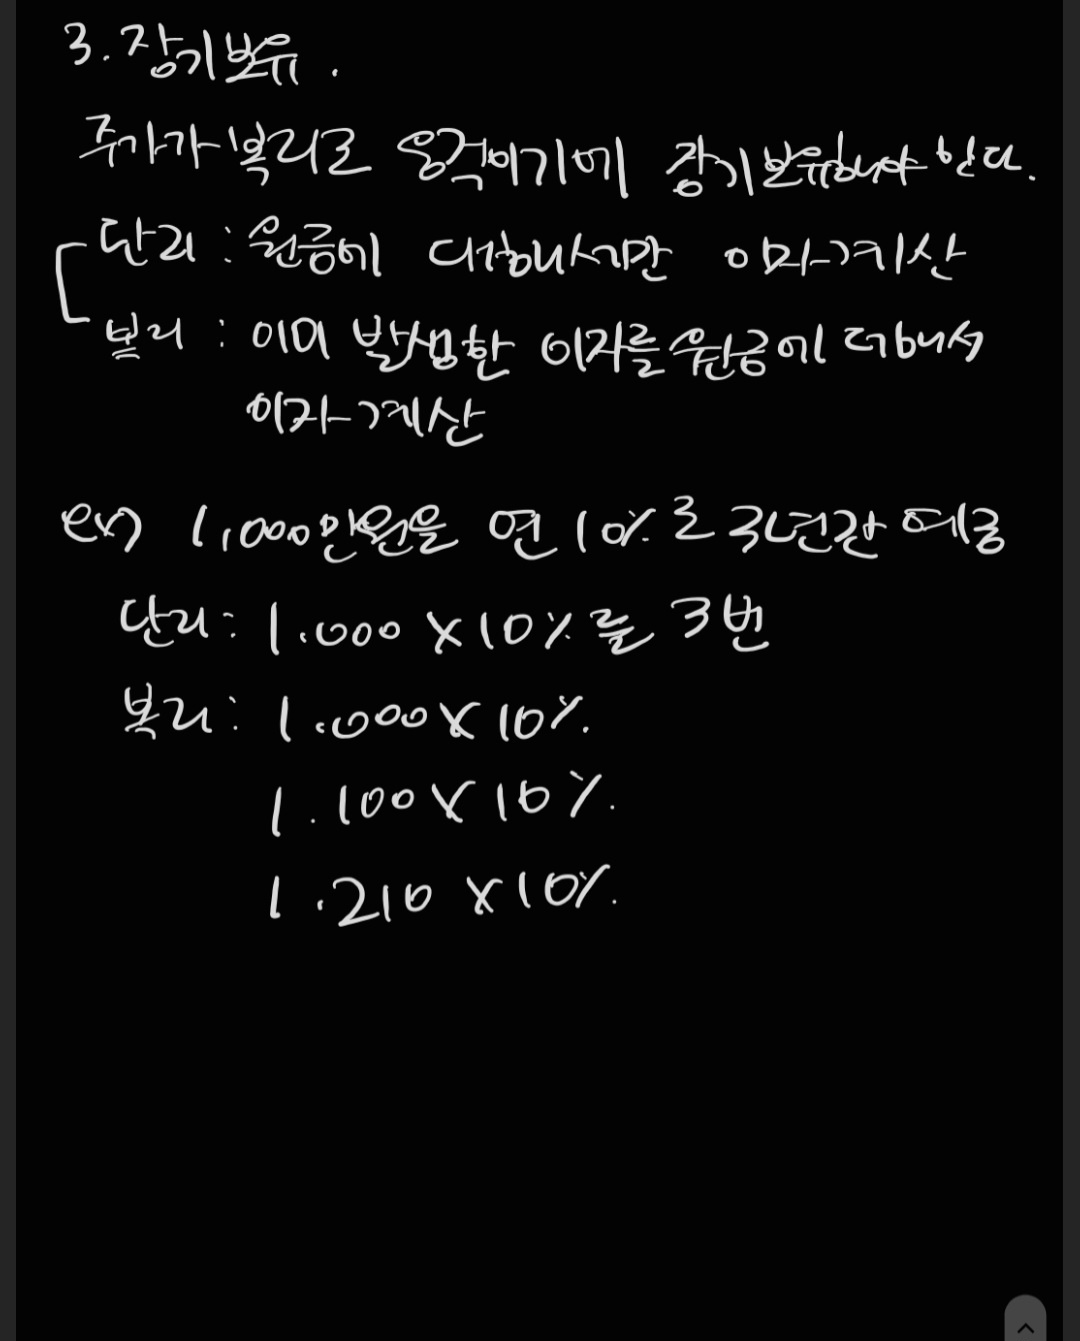 3. 장기보유.
주가가 복리로 움직이기에 장기보유해야 한다.
단리 : 원금에 대해서만 이자계산
복리 : 이미 발생한 이자를 원금에 더해서
이자계산
ex) 1,000만원을 연 10%로 3년간 예금
단리: 1.000 x 10%를 3번
복리: 1.000 x 10%.
1.100 x 10%.
1.210 x 10%.